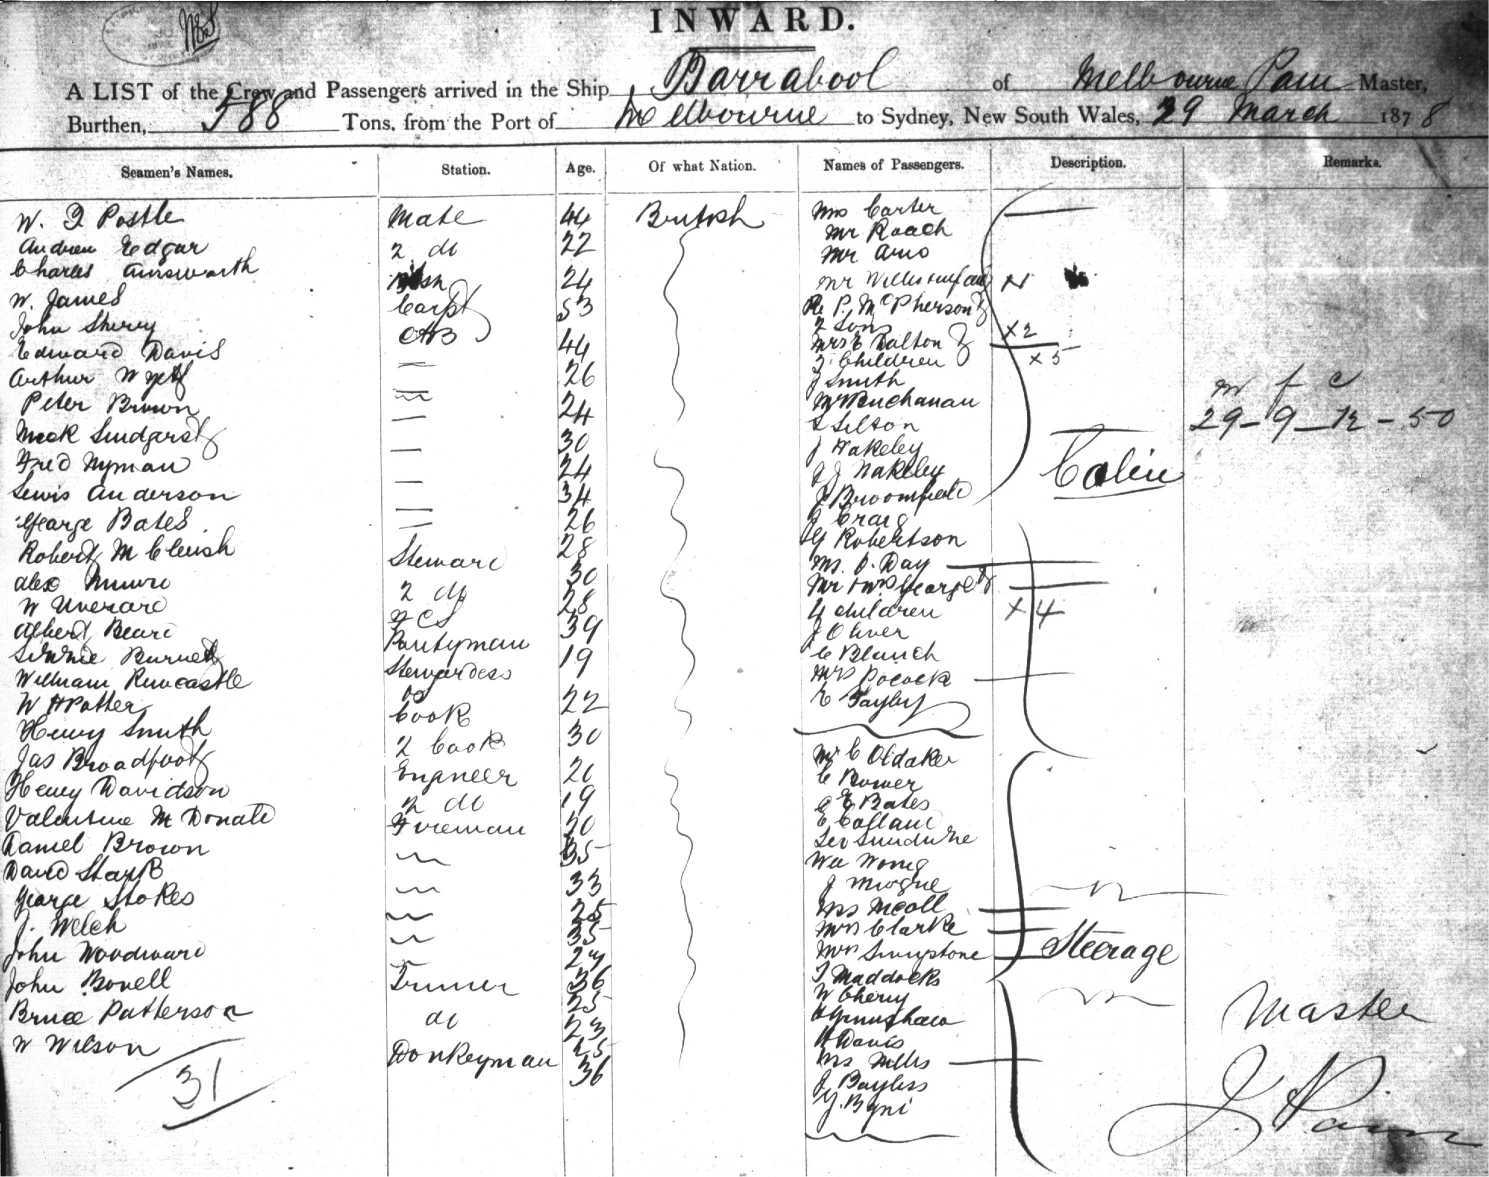 INWARD.
A LIST of the Crew and Passengers arrived in the Ship Barrabool of Melbourne Pain Master,
Burthen, 588 Tons, from the Port of Melbourne to Sydney, New South Wales, 29 March 1878
Seamen's Names. Station. Age. Of what Nation. Names of Passengers. Description. Remarks.
W. Postle Mate 44 British
Andrew Edgar 2 do 22
Charles Ainsworth 24
W. James Carpt 53
John Sherry AB
Edward Davis 44
Arthur 26
Peter Brown 24
30
Fred Nyman 24
Lewis Anderson 34
George Bates. 26
Robert M Steward 28
Alex Munro 2 do 30
W 28
Albert Beard Pantryman 39
Burnett Stewardess 19
William Runcastle do
W H Potter Cook 22
Henry Smith 2 Cook 30
Jas Broadfoot Engineer
Henry Davidson 2 do 19
Valentine Mc Donald Fireman
Daniel Brown 35
David 33
George Stokes 25
J. Welch 35
John Woodward
John Bovell Trimmer 36
Bruce Patterson do 25
W Wilson 23
Donkeyman 25
36
31
Mrs Carter
Mr Roach
Mr Amo
Mr Willis
P. McPherson &
2 Sons x2
Mrs E Dalton &
Children x5
J Smith
Buchanan
J Wakeley
J Wakeley
J Broomfield
Craig
G Robertson
Day
Mr & Mrs George &
4 children x4
J Oliver
C Blanch
Mrs Pocock
E Tayley
Cabin
Mr C Oldaker
C Bower
G E Bates
Mrs McColl
Mrs Clarke
Mrs Livingstone
T Maddocks
W Cherry
H Davis
Mrs Mills
J Bayliss
Steerage
m f c
29 - 9 - 12 - 50
Master
J Pain